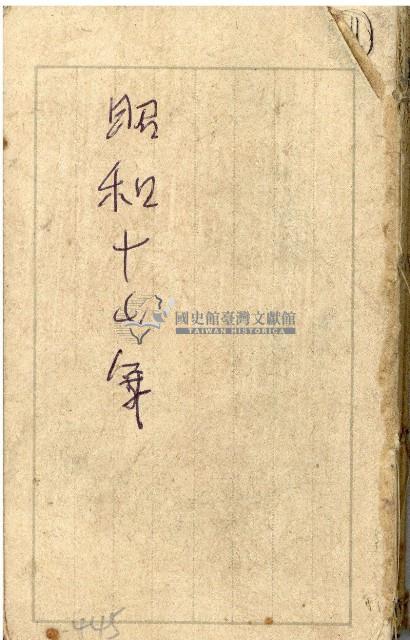 11
昭和十年
國史館臺灣文獻館
TAIWAN HISTORICA
445